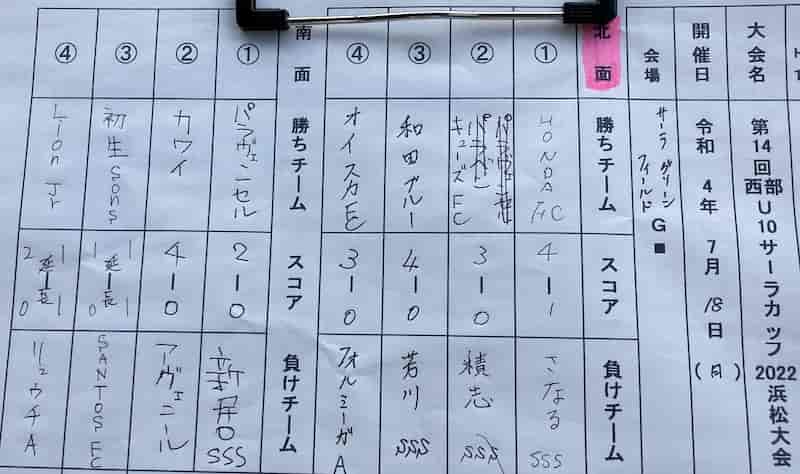 大会名 第14回 西部U10サーラカップ2022浜松大会
開催日 令和 4年 7月 18日 (月)
会場 サーラ グリーン フィールド G ■
北面 勝ちチーム スコア 負けチーム
① HONDA FC 4-1 さなる SSS
② キューズFC 3-0 積志 SSS
③ 和田ブルー 4-0 芳川 SSS
④ オイスカE 3-0 フォルミーガA
南面 勝ちチーム スコア 負けチーム
① パラヴェンセル 2-0 新居 SSS
② カワイ 4-0 アーヴェニール
③ 初生 sons 1 1 延長 1 1 SANTOS FC
④ Lion Jr 2 1 延長 0 1 リュウチA